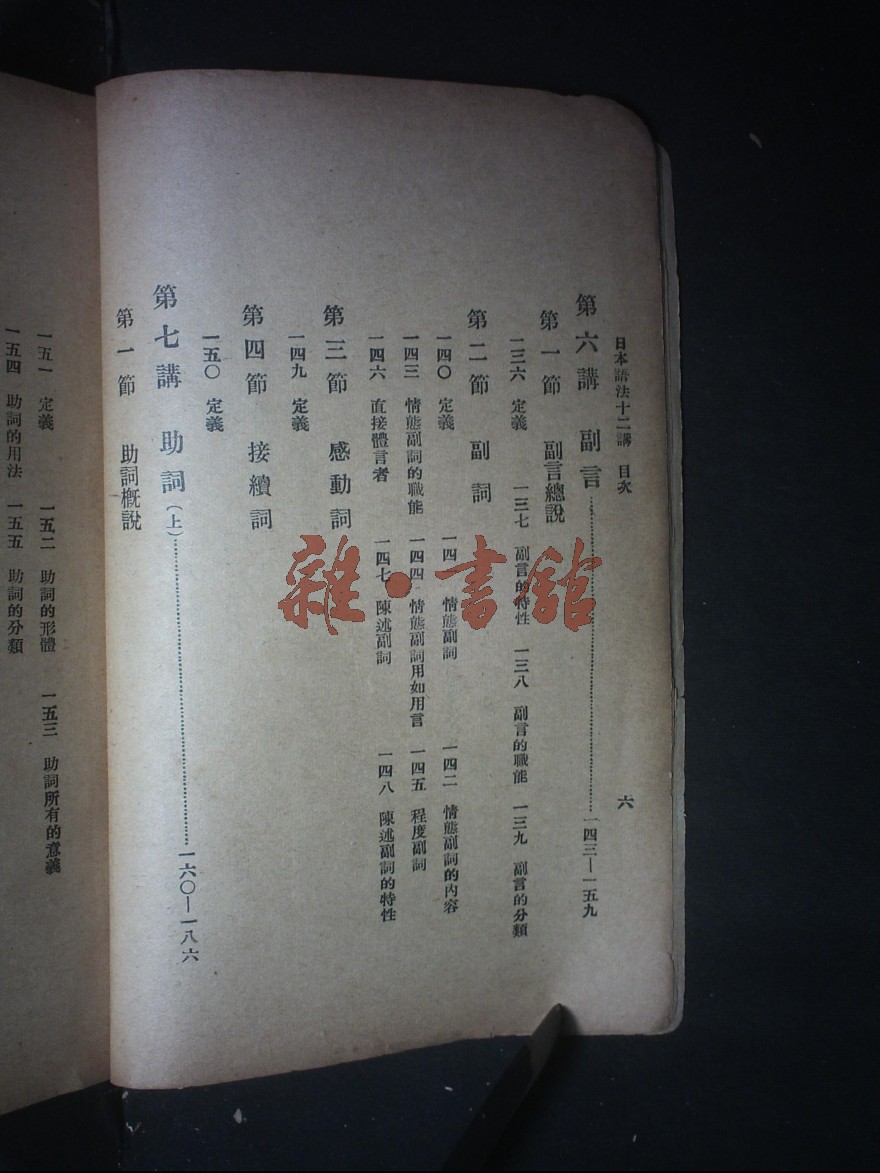 日本語法十二講 目次
六
第六講 副言……一四三—一五九
第一節 副言總說
一三六 定義 一三七 副言的特性 一三八 副言的職能 一三九 副言的分類
第二節 副詞
一四〇 定義 一四一 情態副詞 一四二 情態副詞的內容
一四三 情態副詞的職能 一四四 情態副詞用如用言 一四五 程度副詞
一四六 直接體言者 一四七 陳述副詞 一四八 陳述副詞的特性
第三節 感動詞
一四九 定義
第四節 接續詞
一五〇 定義
第七講 助詞(上)……一六〇—一八六
第一節 助詞槪說
一五一 定義 一五二 助詞的形體 一五三 助詞所有的意義
一五四 助詞的用法 一五五 助詞的分類
雜·書館